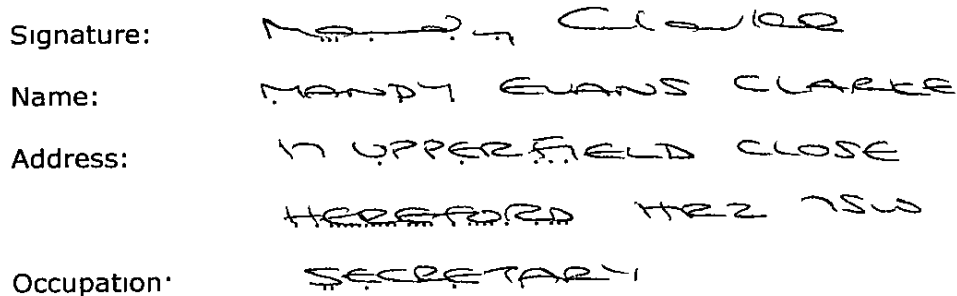 Signature: Mandy Clarke
Name: MANDY EVANS CLARKE
Address: 17 UPPERFIELD CLOSE
HEREFORD HR2 7SW
Occupation: SECRETARY